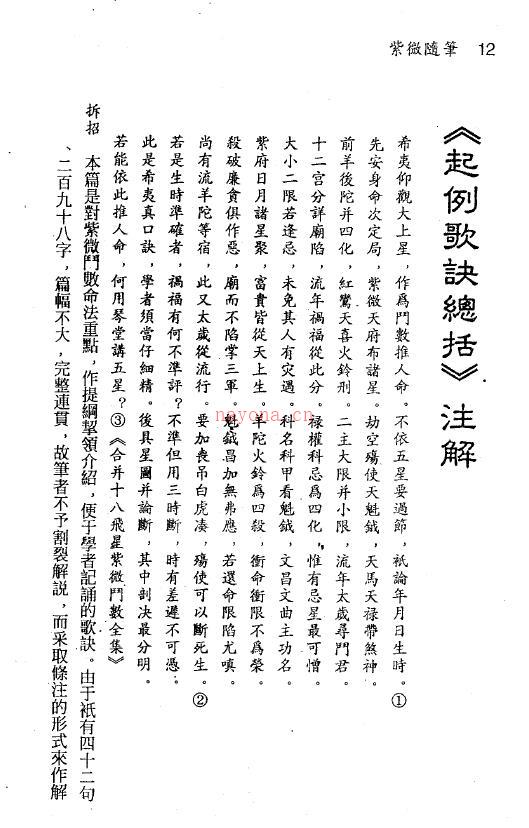 紫微隨筆 12
《起例歌訣總括》注解
希夷仰觀大上星，作爲鬥數推人命。不依五星要過節，衹論年月日生時。①
先安身命次定局，紫微天府布諸星。劫空殤使天魁鉞，天馬天禄帶煞神。
前羊後陀并四化，紅鸞天喜火鈴刑。二主大限并小限，流年太歲尋鬥君。
十二宫分詳廟陷，流年禍福從此分。禄權科忌爲四化，惟有忌星最可憎。
大小二限若逢忌，未免其人有灾遇。科名科甲看魁鉞，文昌文曲主功名。
紫府日月諸星聚，富貴皆從天上生。羊陀火鈴爲四殺，衝命衝限不爲榮。
殺破廉貪俱作惡，廟而不陷掌三軍。魁鉞昌加無弗應，若還命限陷尤嗔。
尚有流羊陀等宿，此又太歲從流行。要加喪吊白虎凑，殤使可以斷死生。②
若是生時準確者，禍福有何不準評？不準但用三時斷，時有差遲不可憑。
此是希夷真口訣，學者須當仔細精。後具星圖并論斷，其中剖决最分明。
若能依此推人命，何用琴堂講五星？③《合并十八飛星紫微鬥數全集》
拆招
本篇是對紫微鬥數命法重點，作提綱挈領介紹，便于學者記誦的歌訣。由于衹有四十二句
、二百九十八字，篇幅不大，完整連貫，故筆者不予割裂解説，而采取條注的形式來作解
nayona.cn